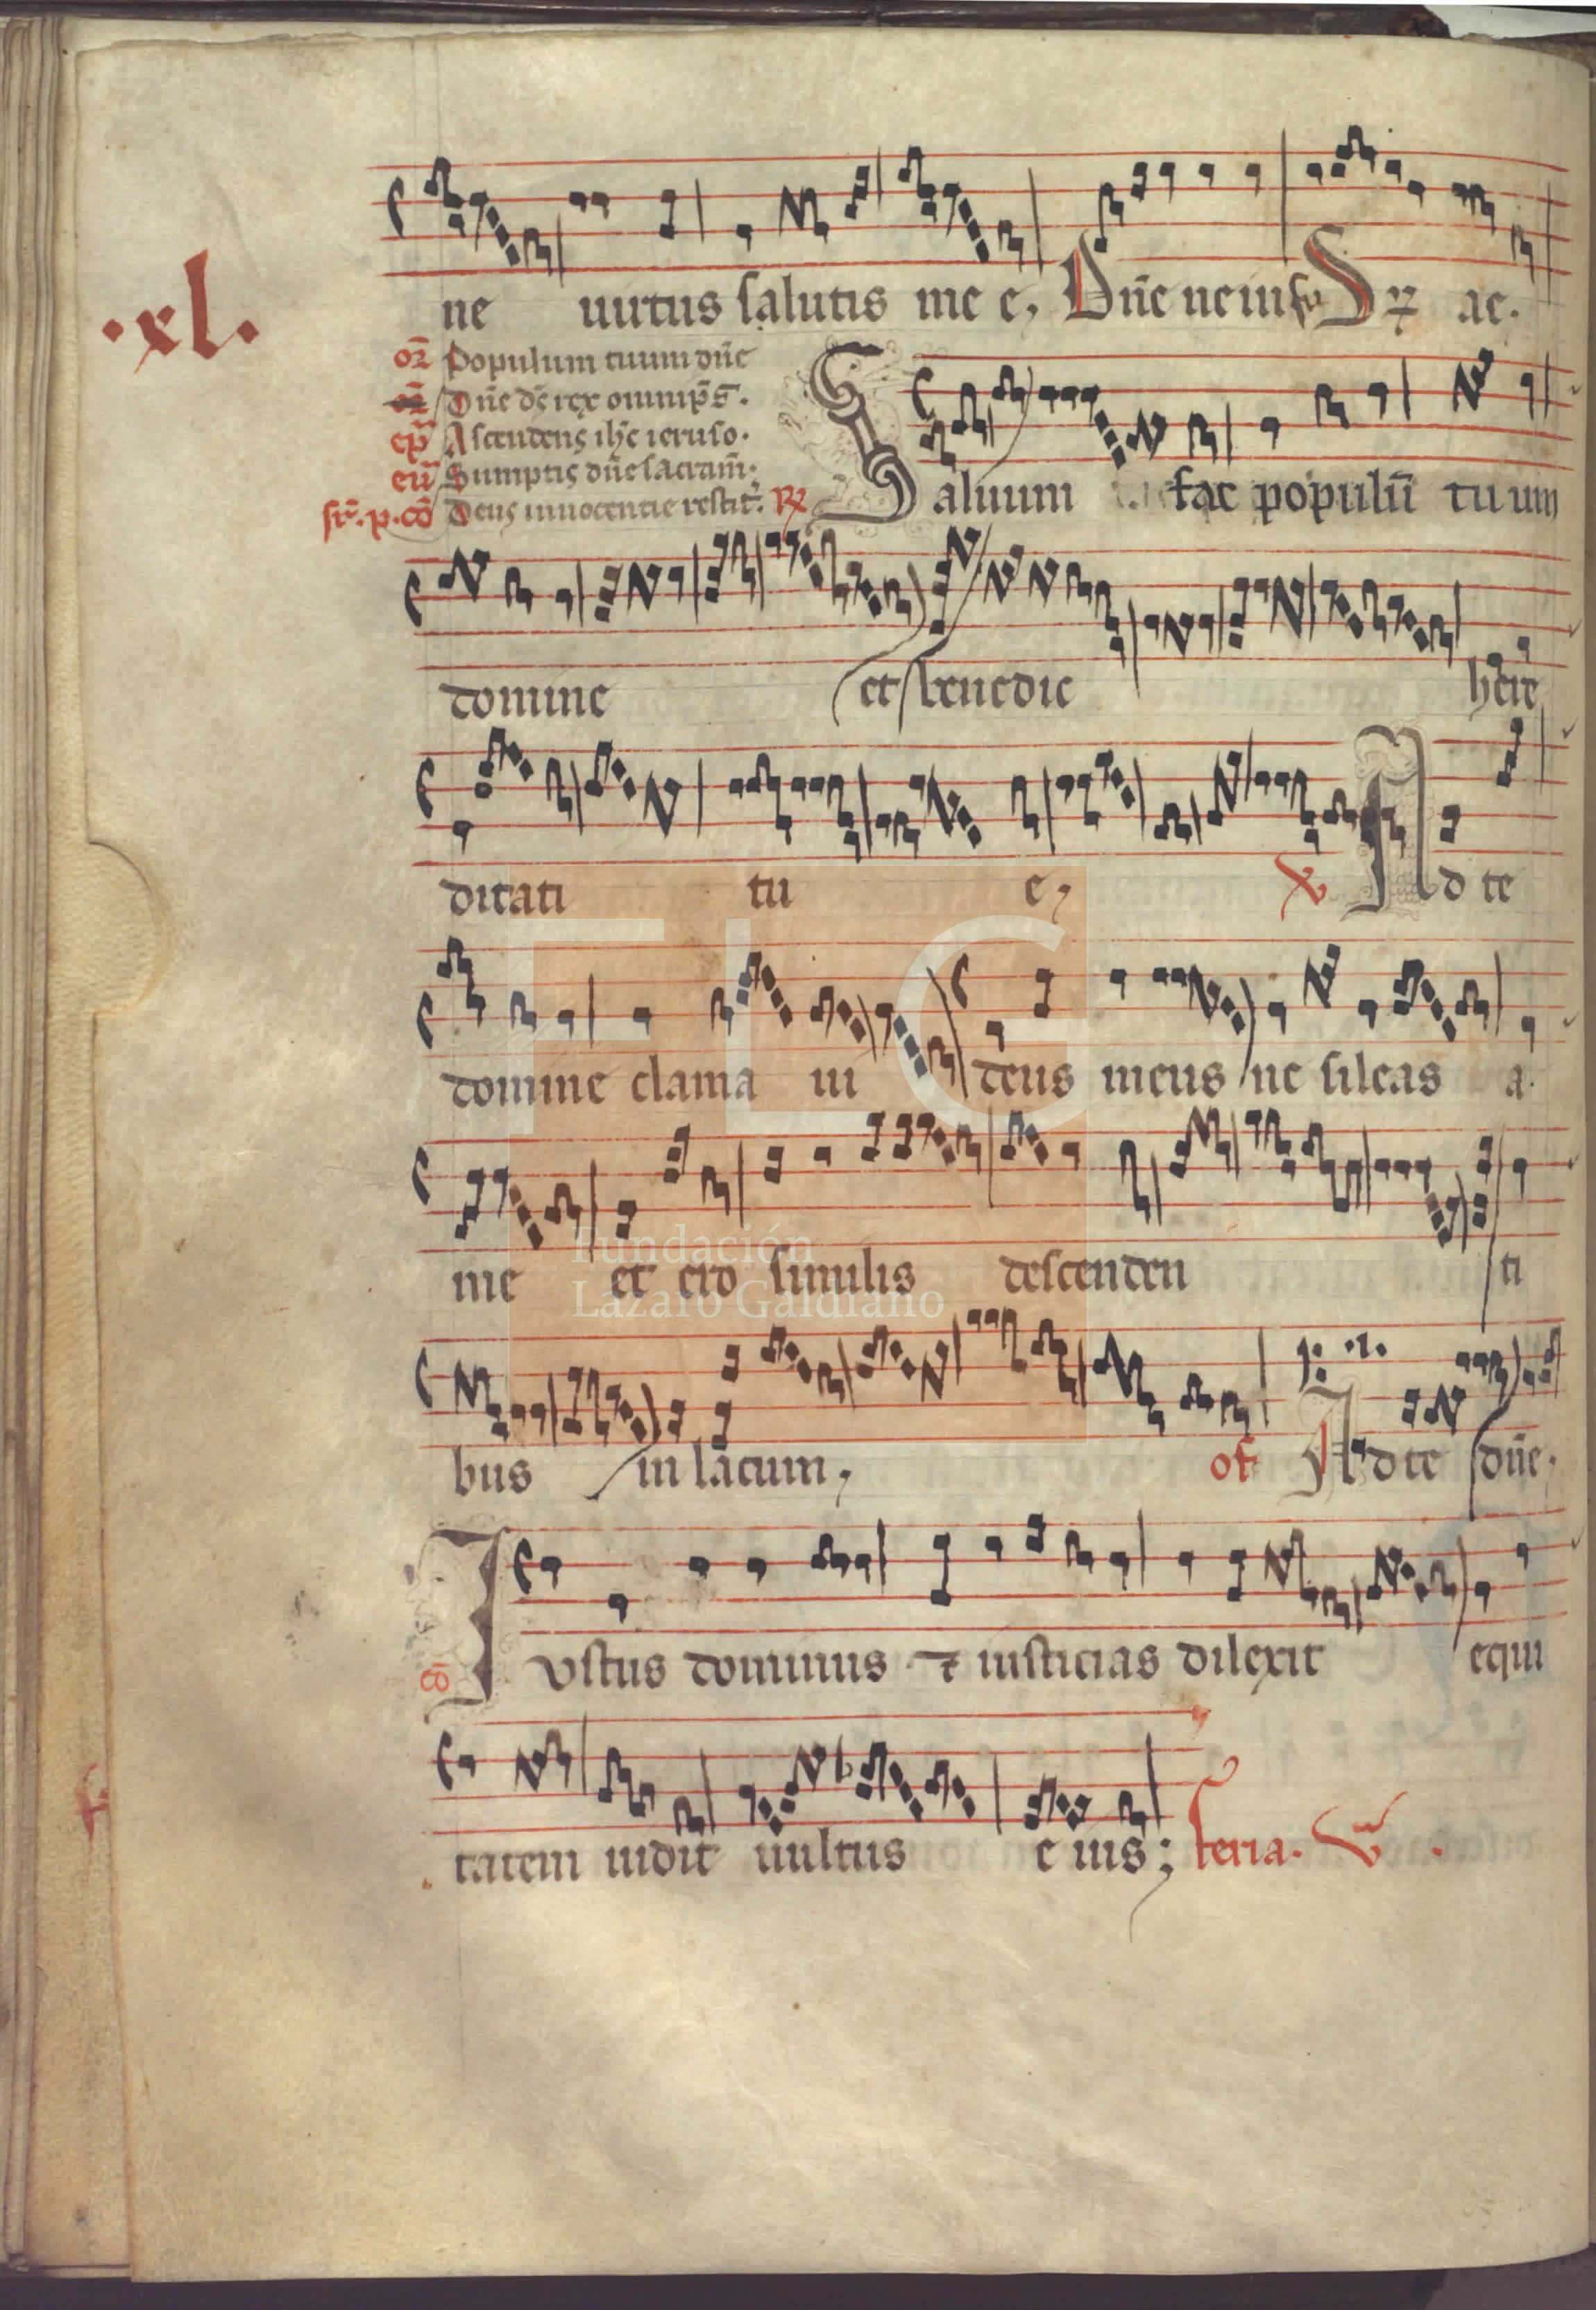 .xl.
ne uirtus salutis me e, Dñe ne in s ae.
Populum tuum dñe
Dñe dš rex omnip̄s.
ep̄ Ascendens ihc ieruso.
eū Sumptis dñe sacram̄.
Deus innocencie restit. R
Saluum fac populū tuum
domine et benedic here
ditati tu e, V Ad te
domine clama ui deus meus ne sileas a
me et ero similis descenden ti
bus in lacum, of Ad te dñe.
co Iustus dominus et iusticias dilexit equi
tatem uidit uultus e ius; feria. V.
FLG
Fundación
Lázaro Galdiano